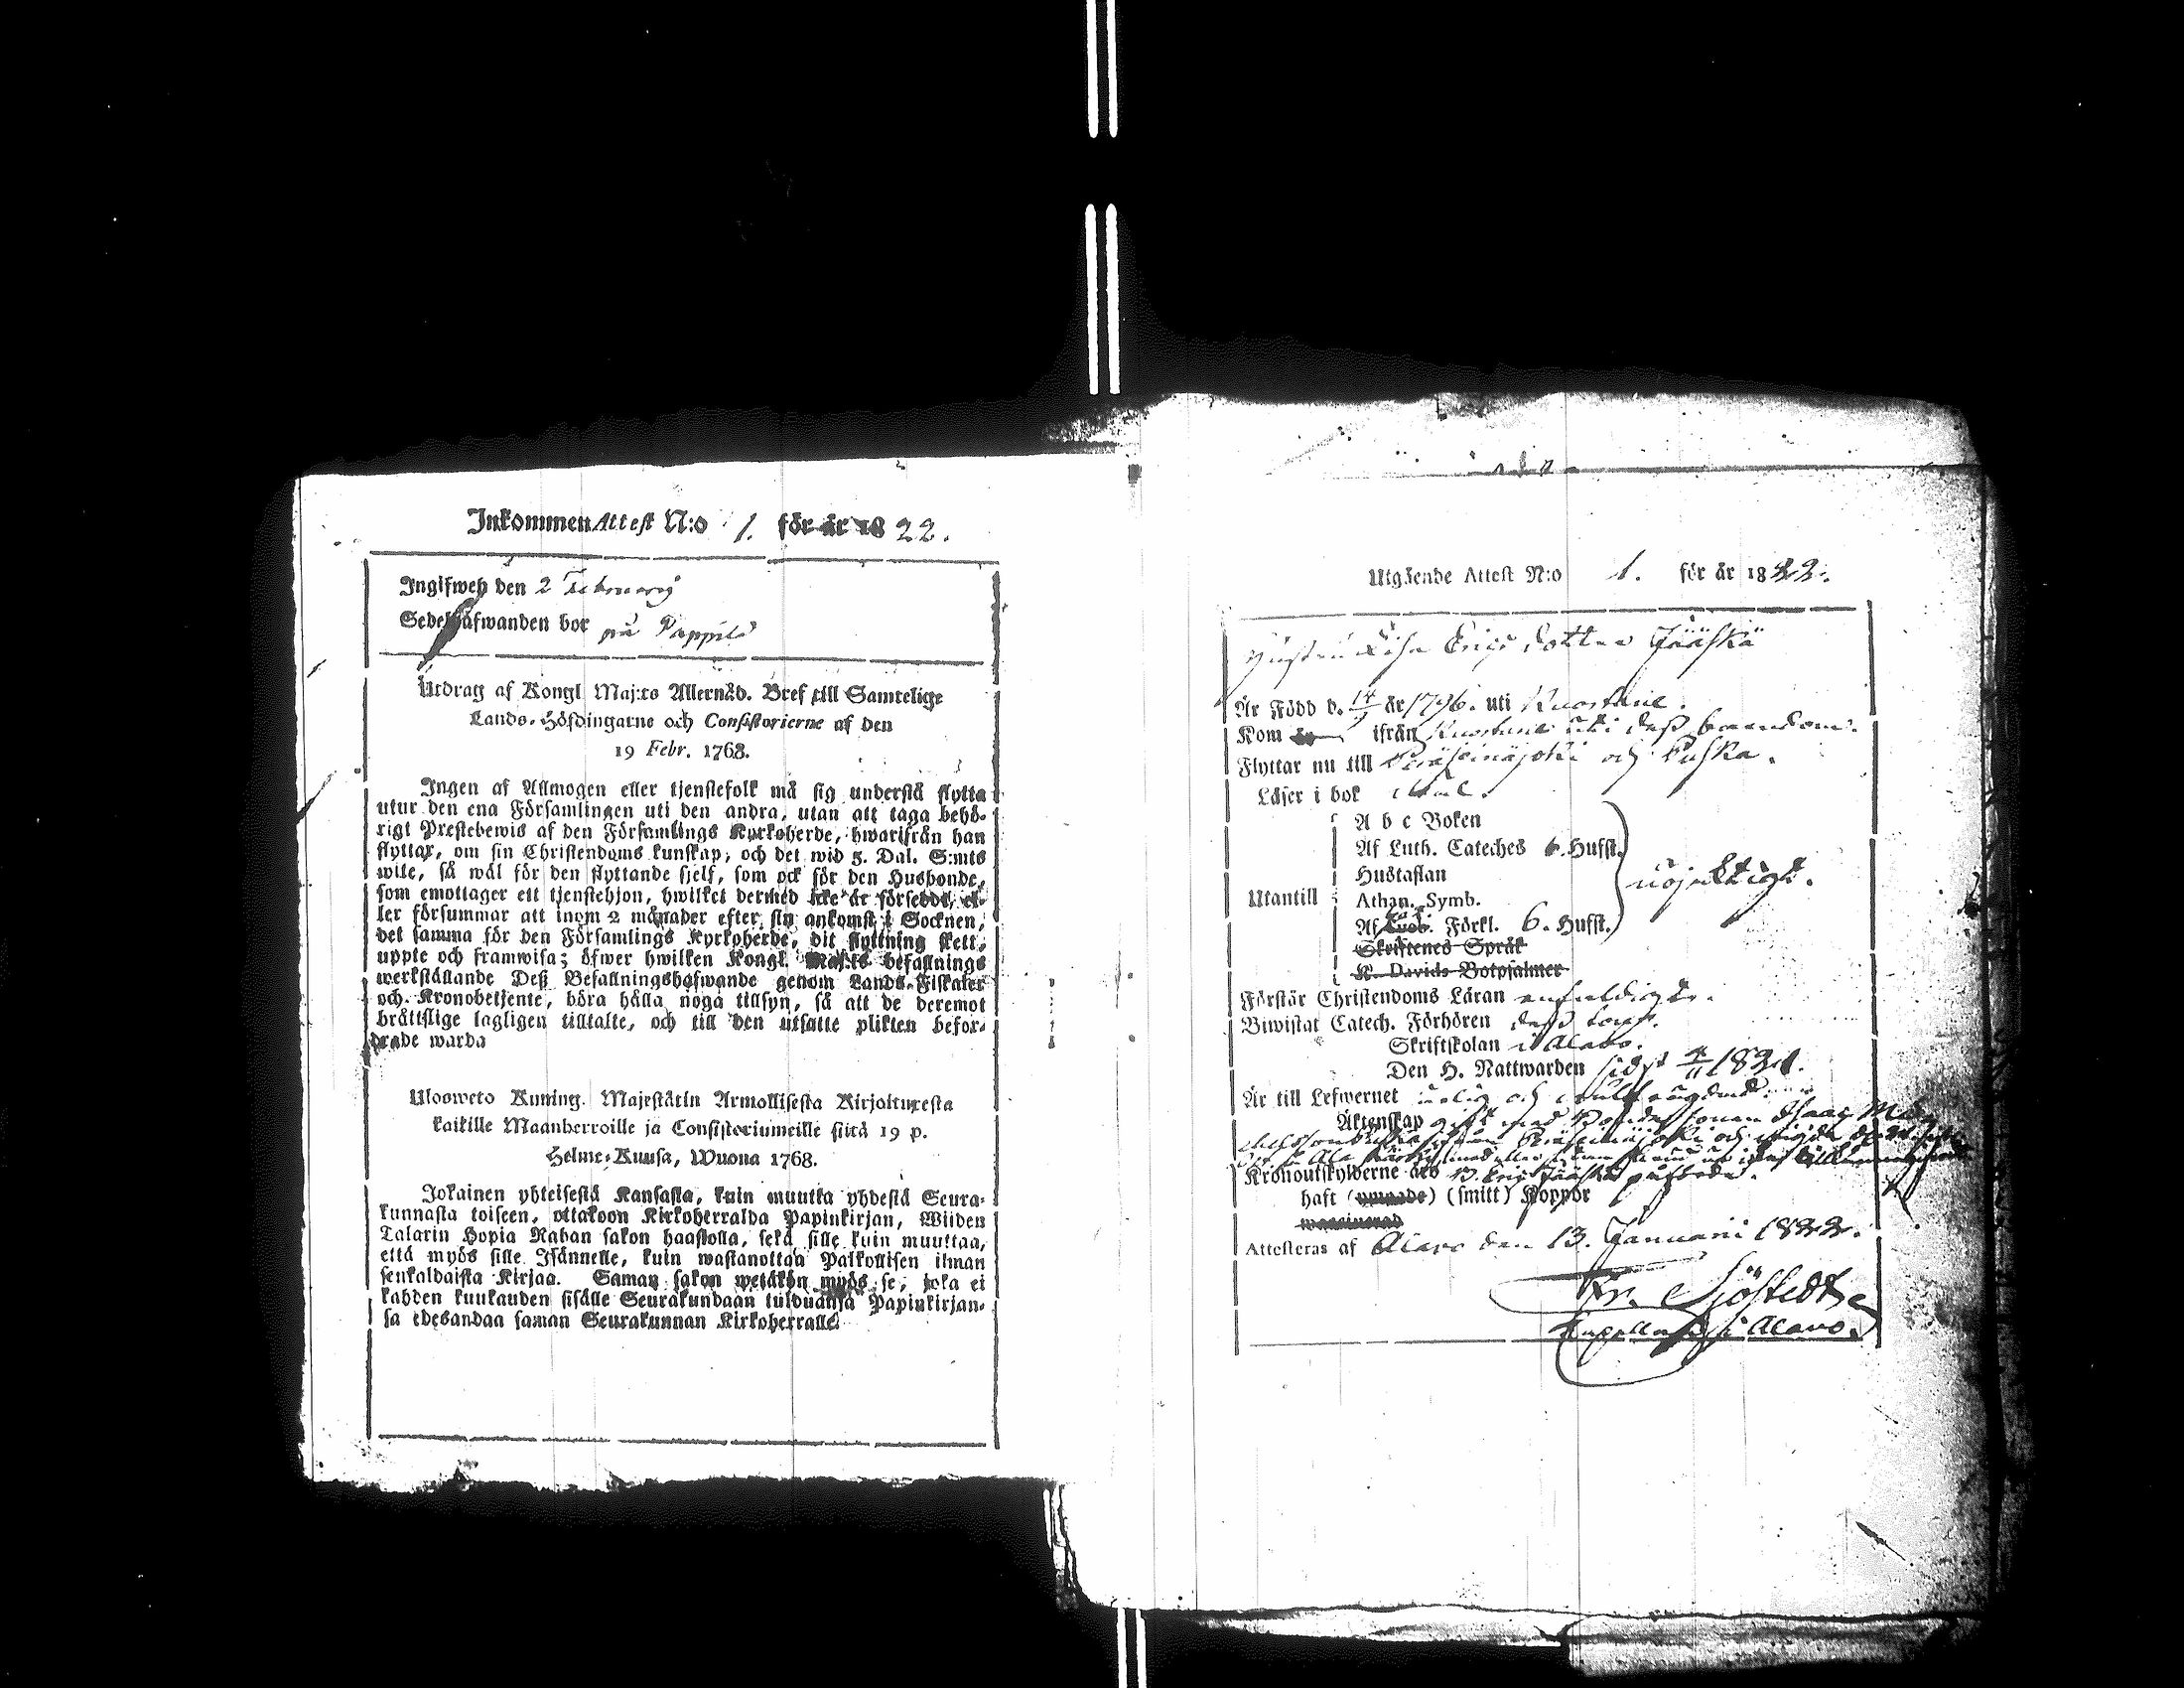 Inkommen Attest N:o 1. för år 1822.
Ingifweh den 2 Februarij
Sedelhafwanden bor på Pappila
Utdrag af Kongl Maj:ts Allernåd. Bref till Samtelige
Lands-Höfdingarne och Consistorierne af den
19 Febr. 1768.
Ingen af Allmogen eller tjenstefolk må sig understå flytta
utur den ena Församlingen uti den andra, utan att taga behö-
rigt Prestebewis af den Församlings Kyrkoherde, hwarifrån han
flyttar, om sin Christendoms kunskap; och det wid 5. Dal. S:mts
wite, så wäl för den flyttande sjelf, som ock för den Husbonde,
som emottager ett tjenstehjon, hwilket dermed icke är försedt, el-
ler försummar att inom 2 månader efter sin ankomst i Socknen,
det samma för den Församlings Kyrkoherde, dit flyttning skett,
uppte och framwisa; öfwer hwilken Kongl. Maj:ts befallnings
werkställande Deß Befallningshafwande genom Lands-Fiskaler
och Kronobetjente, böra hålla noga tillsyn, så att de deremot
bråttslige lagligen tilltalte, och till den utsatte plikten befor-
drade warda
Ulosweto Kuning. Majestätin Armollisesta Kirjoituresta
kaikille Maanherroille ja Consistoriumeille siitä 19 p.
Helme-Kuusa, Wuona 1768.
Jokainen yhteisestä Kansasta, kuin muutta yhdestä Seura-
kunnasta toiseen, ottakoon Kirkoherralda Papinkirjan, Wiiden
Talarin Hopia Rahan sakon haastolla, sekä sille kuin muuttaa,
että myös sille Isännelle, kuin wastanottaa Palkollisen ilman
senkaldaista Kirjaa. Saman sakon wetäkön myös se, joka ei
kahden kuukauden sisälle Seurakundaan tulduansa Papinkirjan-
sa edesandaa saman Seurakunnan Kirkoherralle.
Utgående Attest N:o 1. för år 1822.
Hustru Lisa Erics dotter Jääskä
Är Född d. 14 år 1796. uti Kuortane.
Kom år ifrån Kuortane uti deß barndom.
Flyttar nu till Peräseinäjoki och Luska.
Läser i bok
A b c Boken
Af Luth. Cateches 6. Hufst.
Hustaflan
Utantill Athan. Symb. nöjaktigt.
Af Förkl. 6. Hufst.
Skriftenes Språk
K. Davids Botpsalmer
Förstår Christendoms Läran enfaldigt.
Biwistat Catech. Förhören
Skriftskolan i Alavo.
Den H. Nattwarden sidst 4/11 1821.
Är till Lefwernet ärlig och
Äktenskap gift med Bondesonen Isaac
Kronoutskylderne
haft (smitt) Koppor
Attesteras af Alavo den 13. Januarii 1822.
Fr. Sjöstedt
Capellan i Alavo.